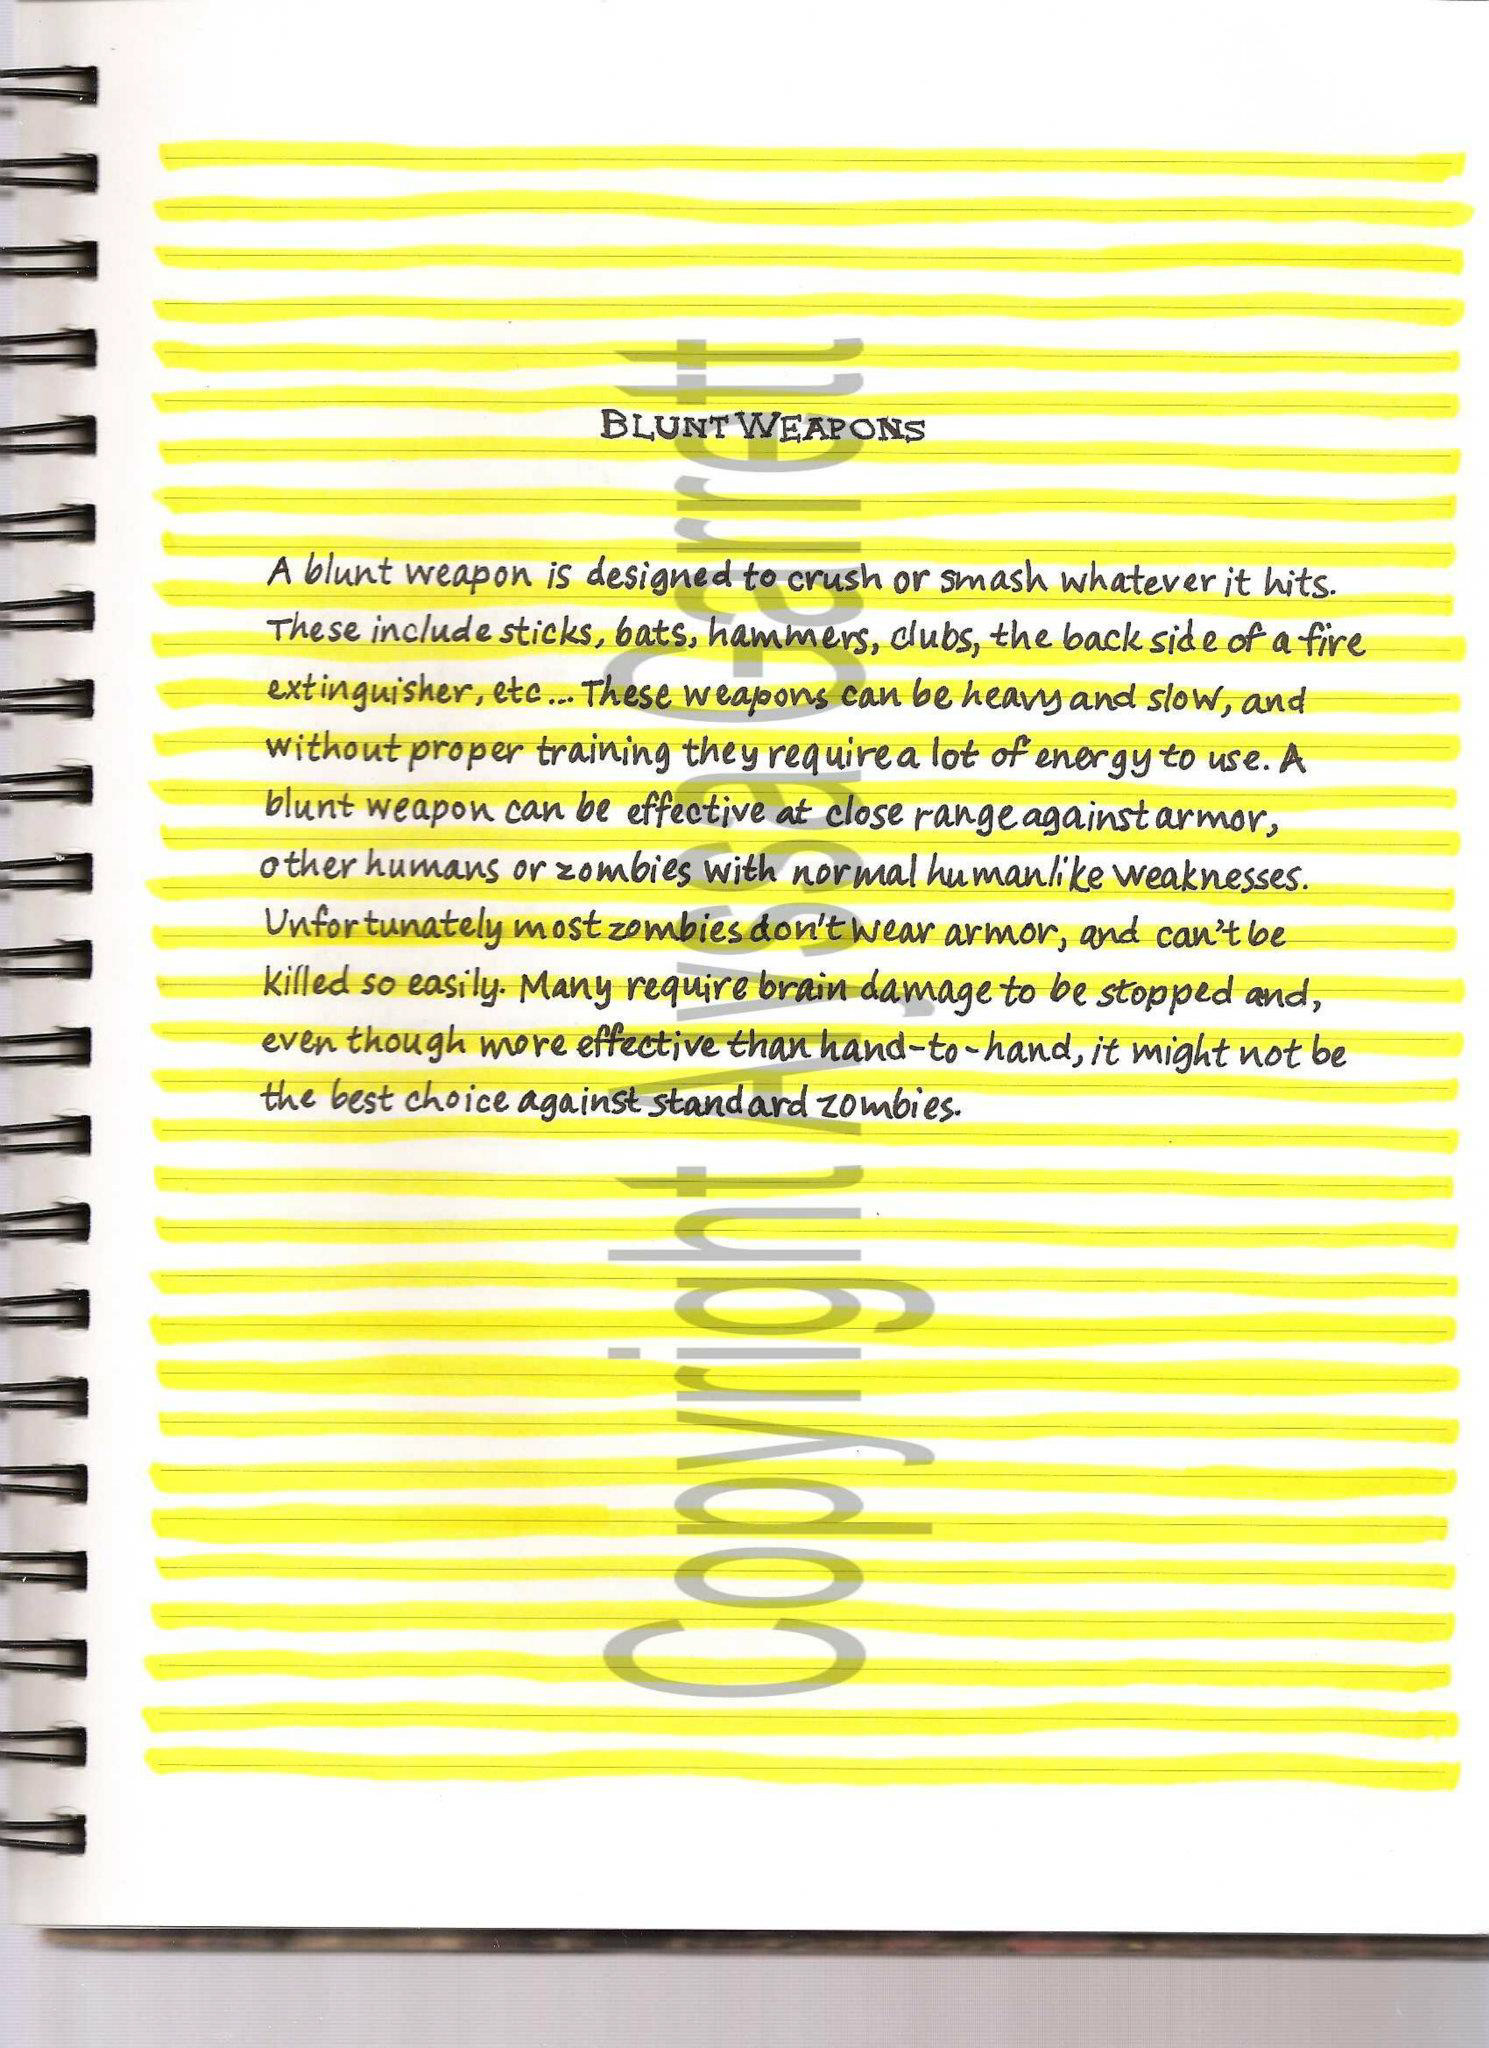 BLUNT WEAPONS
A blunt weapon is designed to crush or smash whatever it hits.
These include sticks, bats, hammers, clubs, the back side of a fire
extinguisher, etc... These weapons can be heavy and slow, and
without proper training they require a lot of energy to use. A
blunt weapon can be effective at close range against armor,
other humans or zombies with normal humanlike weaknesses.
Unfortunately most zombies don't wear armor, and can't be
killed so easily. Many require brain damage to be stopped and,
even though more effective than hand-to-hand, it might not be
the best choice against standard zombies.
Copyright Alyssa Garrett